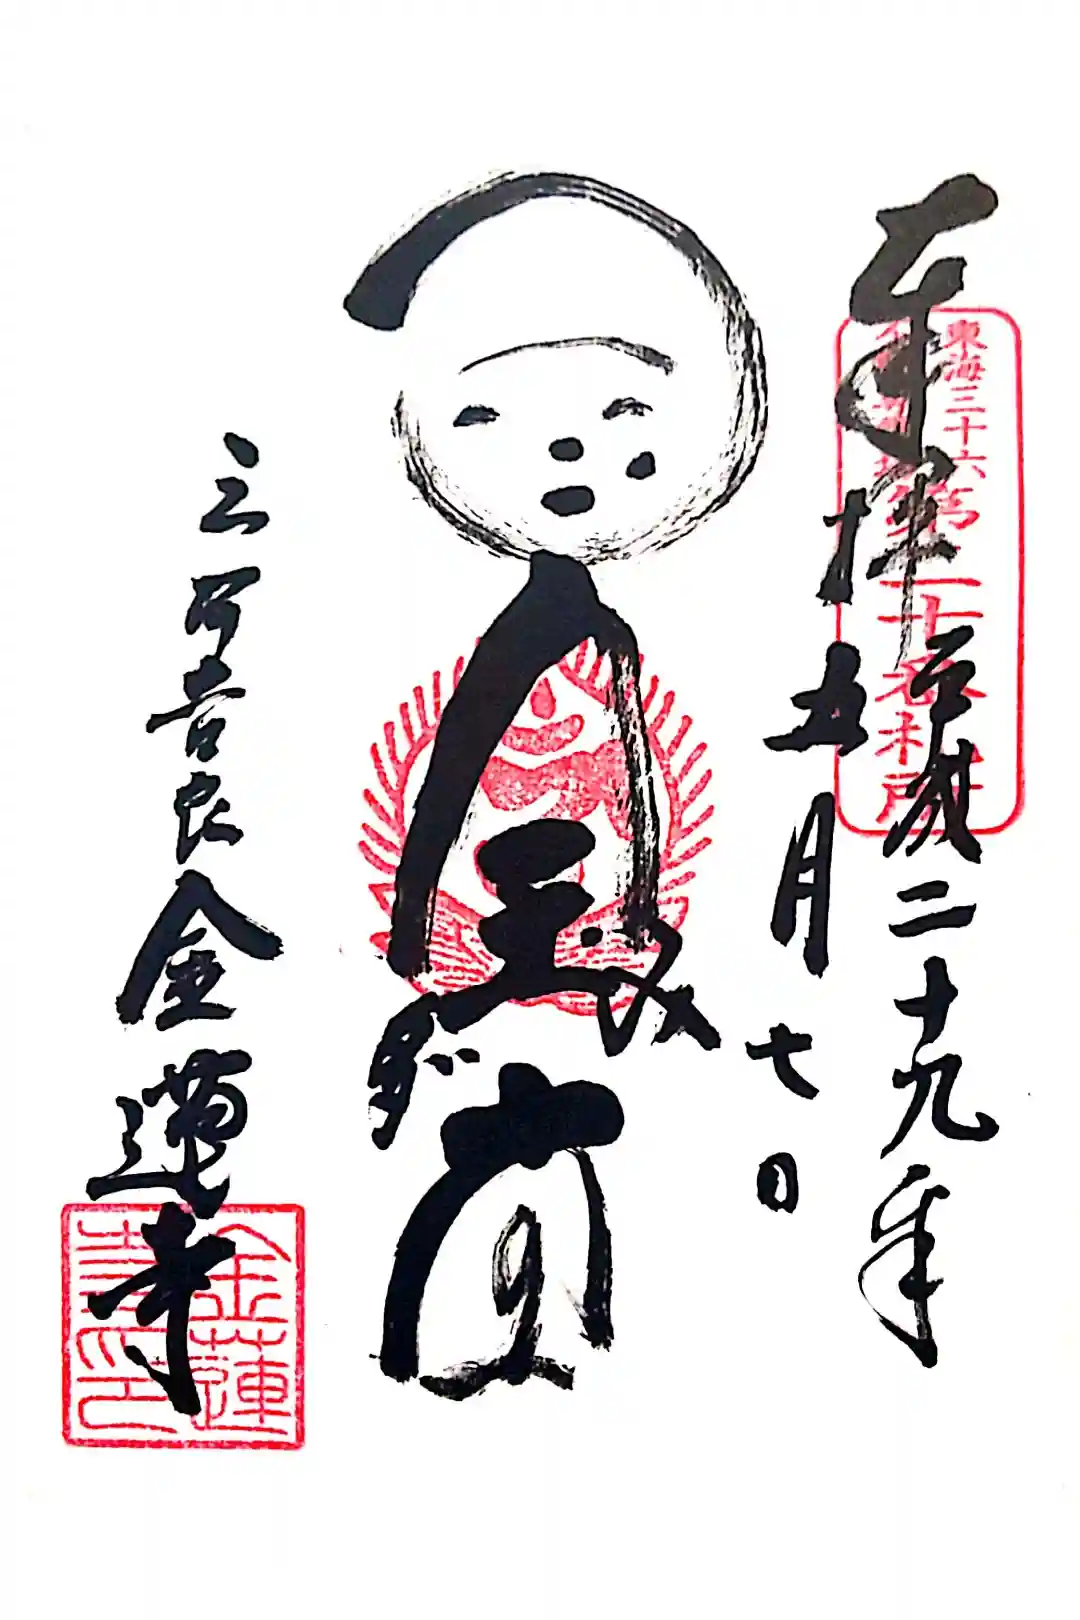 奉拝
平成二十九年
五月七日
東海三十六
第二十番札所
弥陀堂
三河吉良
金蓮寺
金蓮
寺印